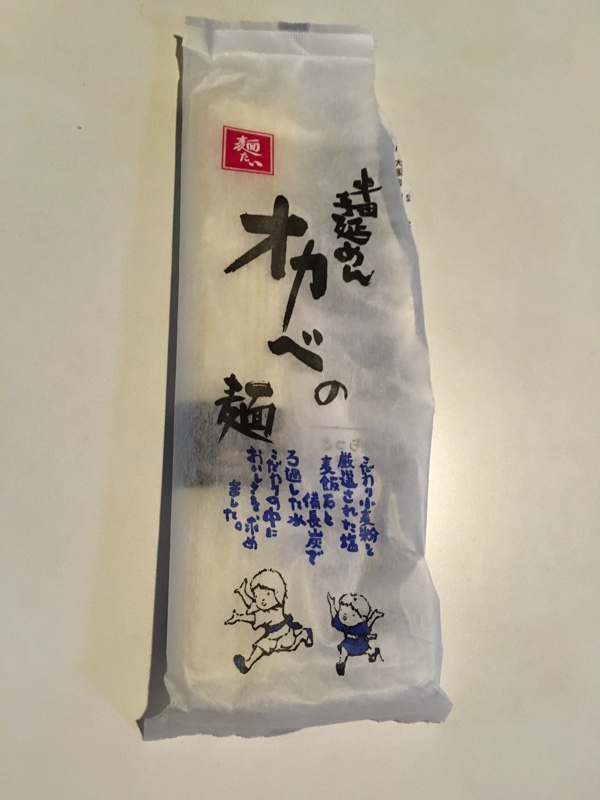 麺
たい
半田手延めん
オカベの
麺
こだわり小麦粉と
厳選された塩
麦飯石と
備長炭で
ろ過した水
こだわりの中に
おいしさを求め
ました。